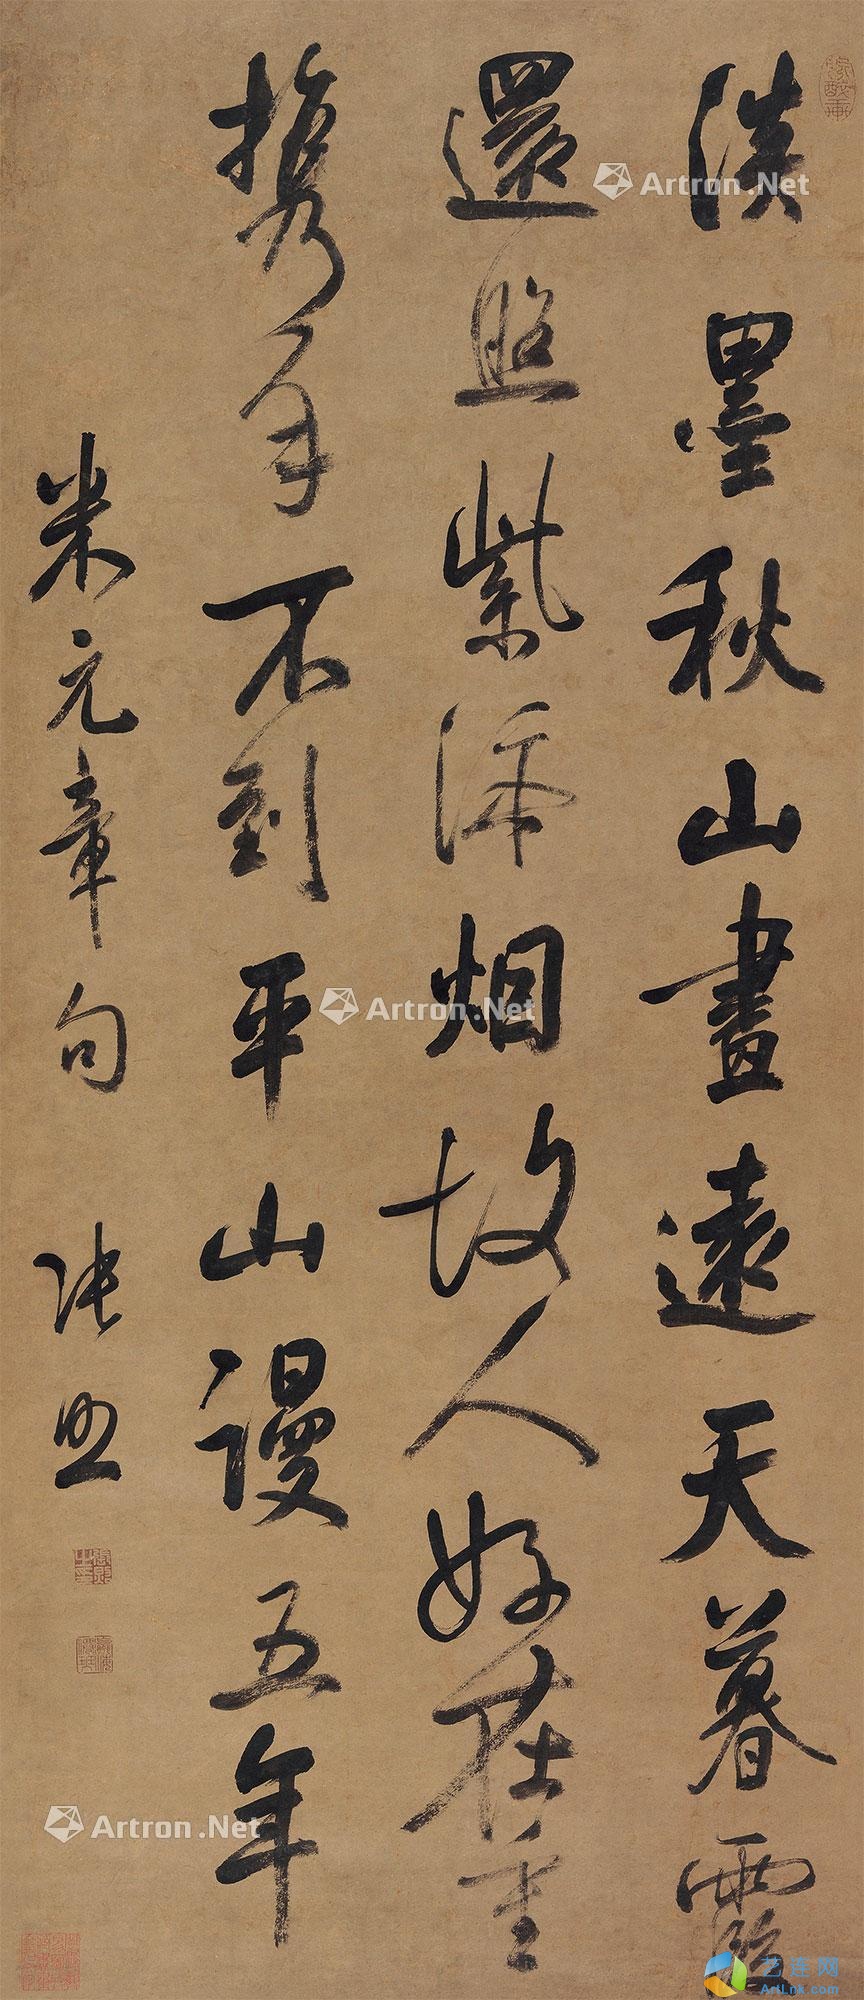 淡墨秋山畫遠天暮霞
還照紫添烟故人好在重
携手不到平山謾五年
米元章句 張照
張照之印
Artron.Net
Artron.Net
Artron.Net
艺连网
ArtLnk.com